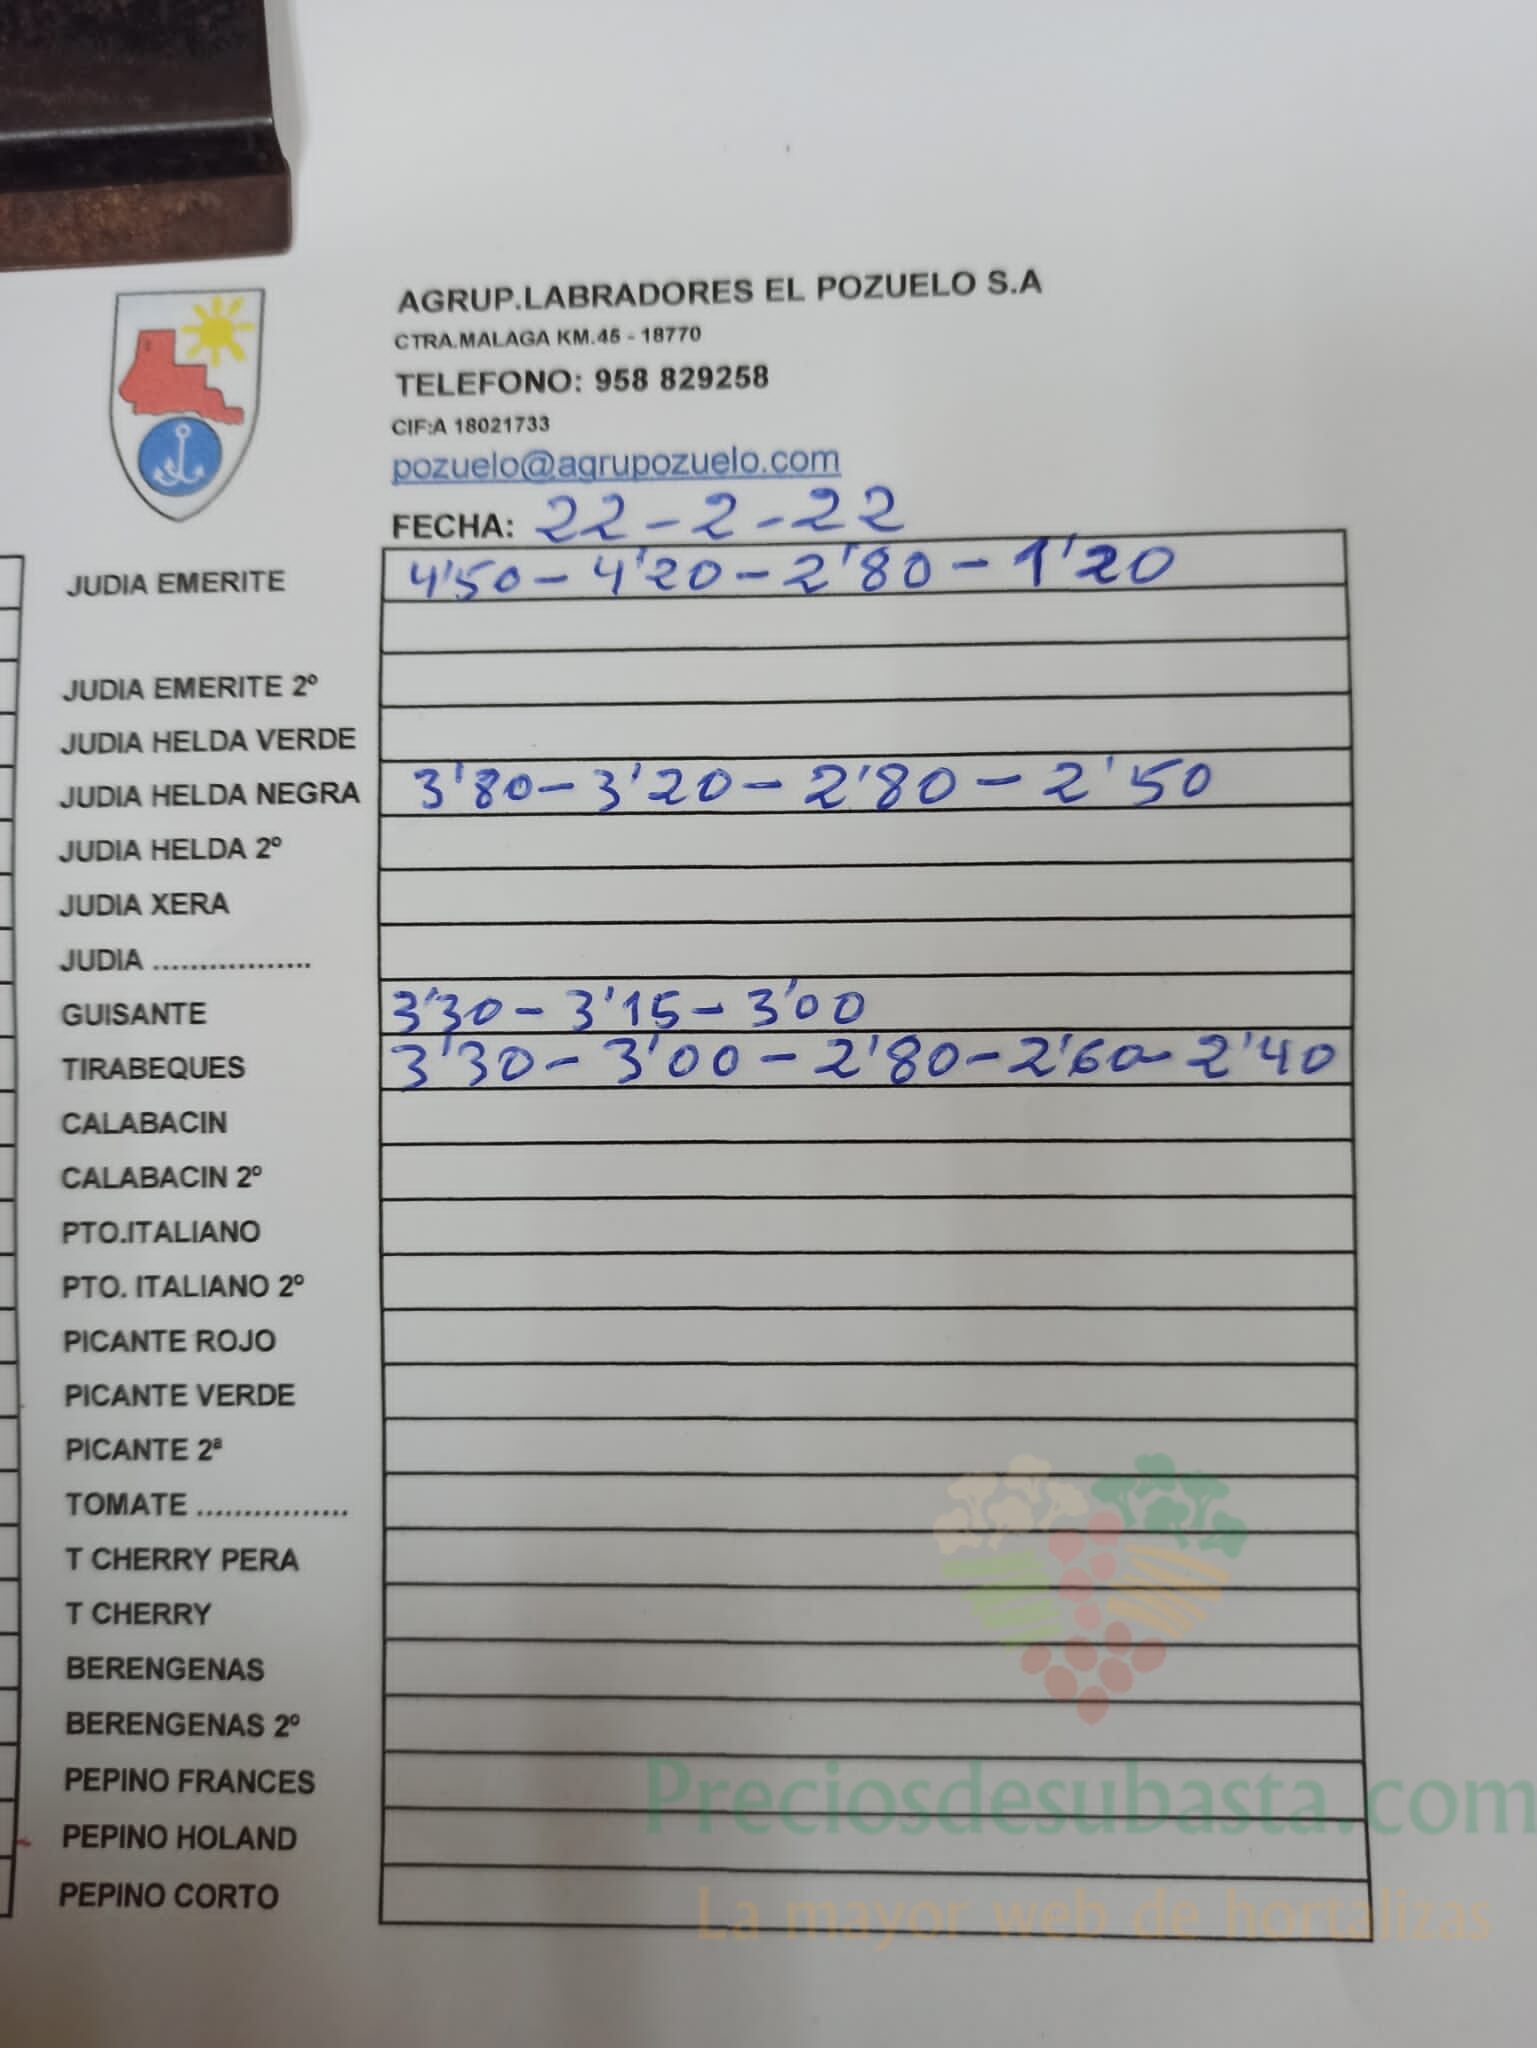 AGRUP.LABRADORES EL POZUELO S.A
CTRA.MALAGA KM.45 - 18770
TELEFONO: 958 829258
CIF:A 18021733
pozuelo@agrupozuelo.com
FECHA: 22-2-22
JUDIA EMERITE 4'50-4'20-2'80-1'20
JUDIA EMERITE 2º
JUDIA HELDA VERDE
JUDIA HELDA NEGRA 3'80-3'20-2'80-2'50
JUDIA HELDA 2º
JUDIA XERA
JUDIA .................
GUISANTE 3'30-3'15-3'00
TIRABEQUES 3'30-3'00-2'80-2'60-2'40
CALABACIN
CALABACIN 2º
PTO.ITALIANO
PTO. ITALIANO 2º
PICANTE ROJO
PICANTE VERDE
PICANTE 2ª
TOMATE ................
T CHERRY PERA
T CHERRY
BERENGENAS
BERENGENAS 2º
PEPINO FRANCES
PEPINO HOLAND
PEPINO CORTO
Preciosdesubasta.com
La mayor web de hortalizas